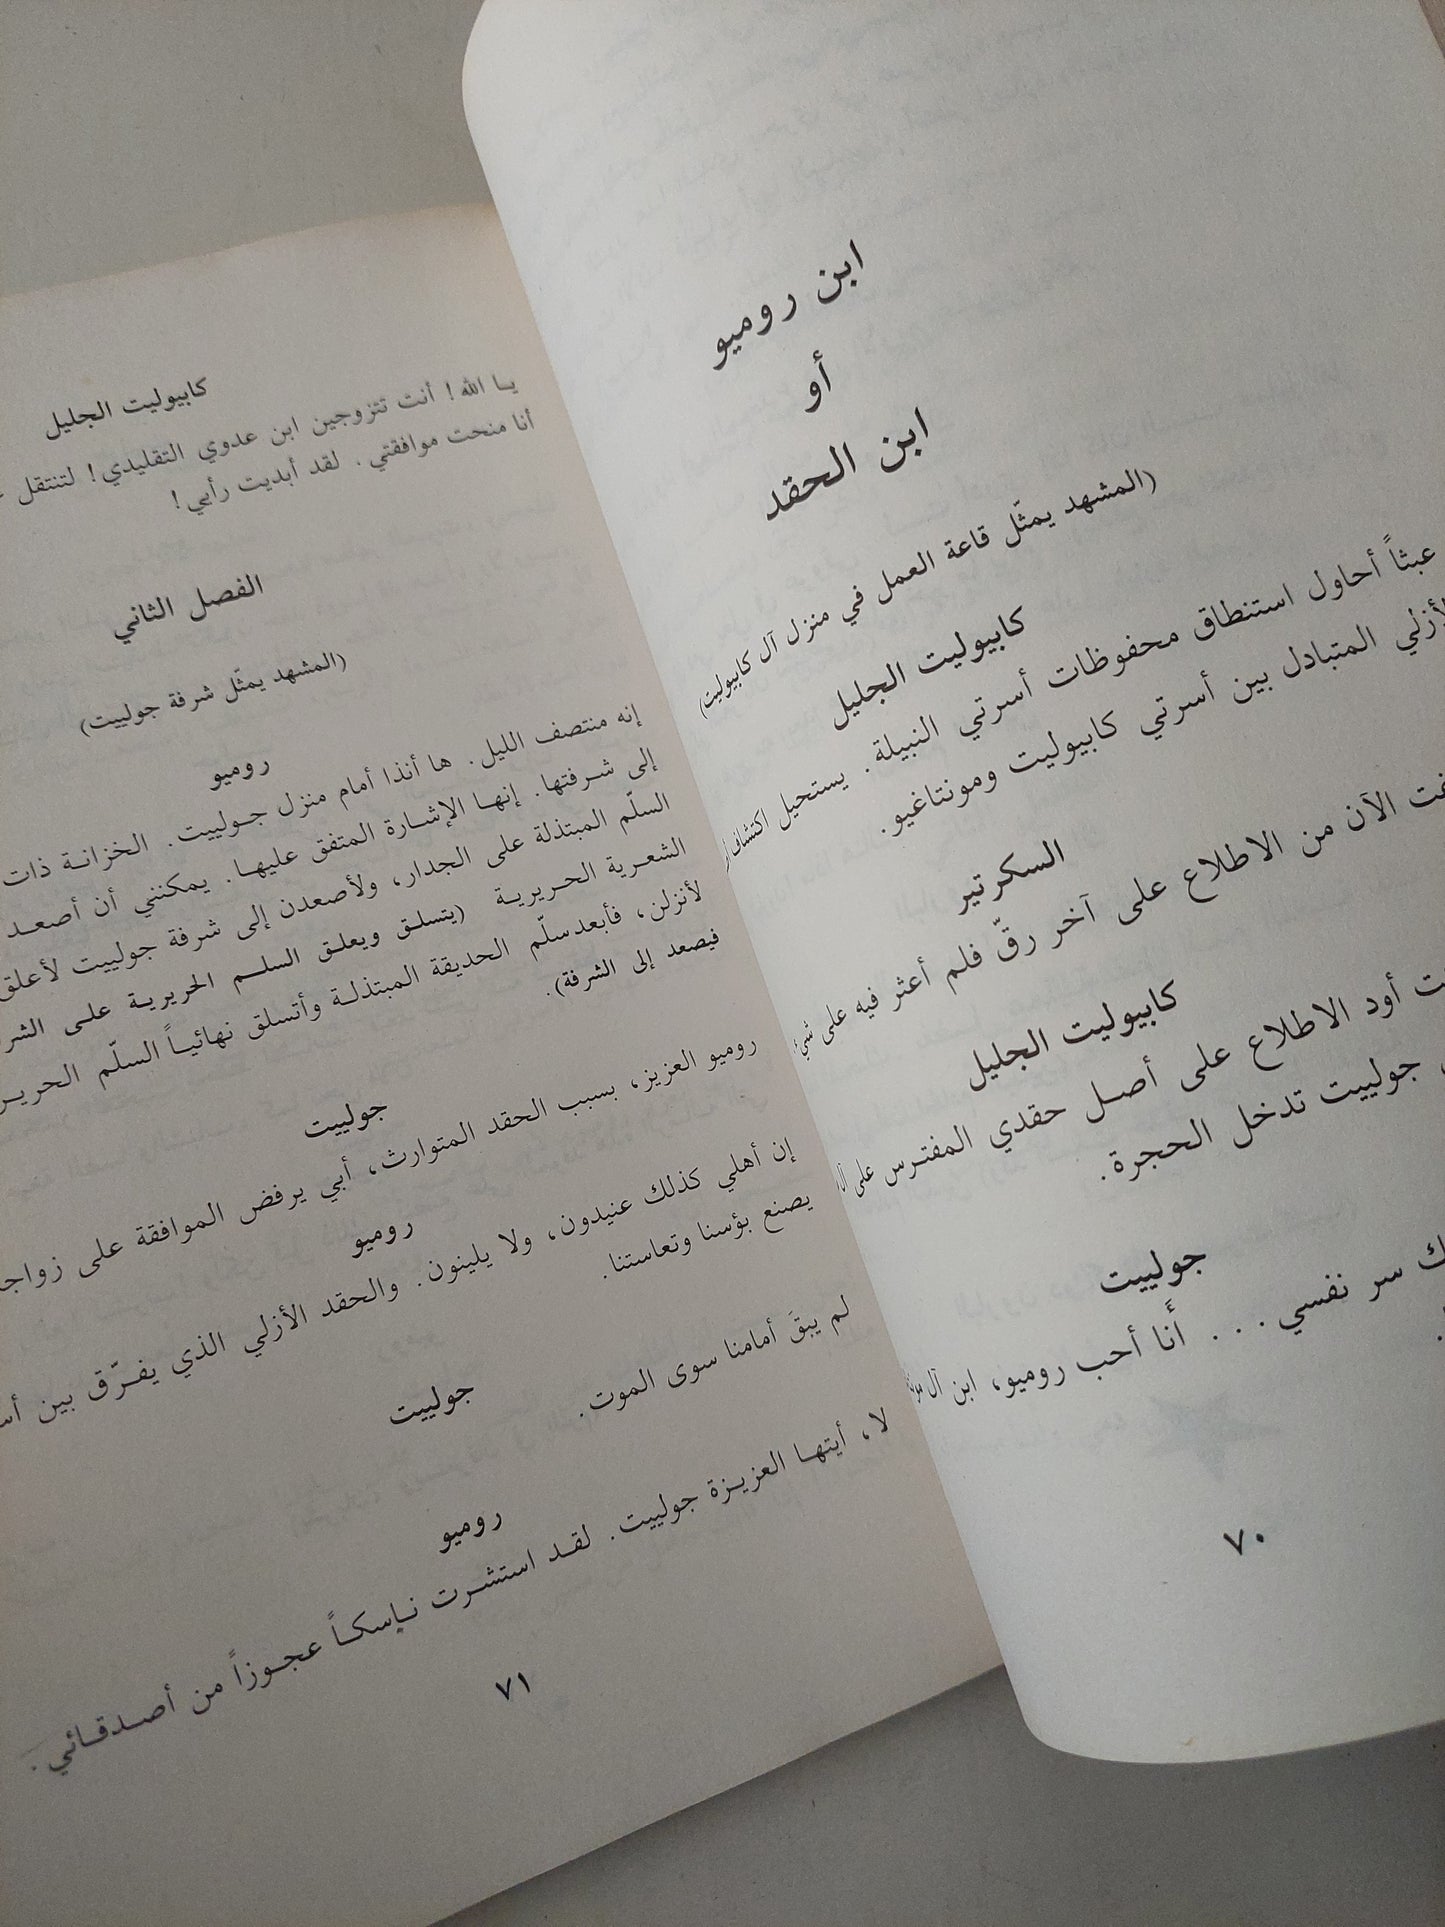 ابن روميو
أو
ابن الحقد
(المشهد يمثّل قاعة العمل في منزل آل كابيوليت)
كابيوليت الجليل
عبثاً أحاول استنطاق محفوظات أسرتي النبيلة. يستحيل اكتشاف
المتبادل بين أسرتي كابيوليت ومونتاغيو.
السكرتير
الآن من الاطلاع على آخر رقّ فلم أعثر فيه على شيء
كابيوليت الجليل
أود الاطلاع على أصل حقدي المفترس على
جولييت تدخل الحجرة.
جولييت
سر نفسي... أَنا أحب روميو، ابن آل
٧٠
كابيوليت الجليل
يا الله! أنت تتزوجين ابن عدوي التقليدي! لتنتقل
أنا منحت موافقتي. لقد أبديت رأيي!
الفصل الثاني
(المشهد يمثّل شرفة جولييت)
روميو
إنه منتصف الليل. ها أنذا أمام منزل جولييت. الخزانة ذات
إلى شرفتها. إنها الإشارة المتفق عليها. يمكنني أن أصعد
السلّم المبتذلة على الجدار، ولأصعدن إلى شرفة جولييت لأعلق
الشعرية الحريرية (يتسلق ويعلق السلم الحريرية على
لأنزلن، فأبعد سلّم الحديقة المبتذلة وأتسلق نهائياً السلّم
فيصعد إلى الشرفة).
جولييت
روميو العزيز، بسبب الحقد المتوارث، أبي يرفض الموافقة على
روميو
إن أهلي كذلك عنيدون، ولا يلينون. والحقد الأزلي الذي يفرّق بين
يصنع بؤسنا وتعاستنا.
جولييت
لم يبقَ أمامنا سوى الموت.
روميو
لا، أيتها العزيزة جولييت. لقد استشرت ناسكاً عجوزاً من أصدقائي.
٧١